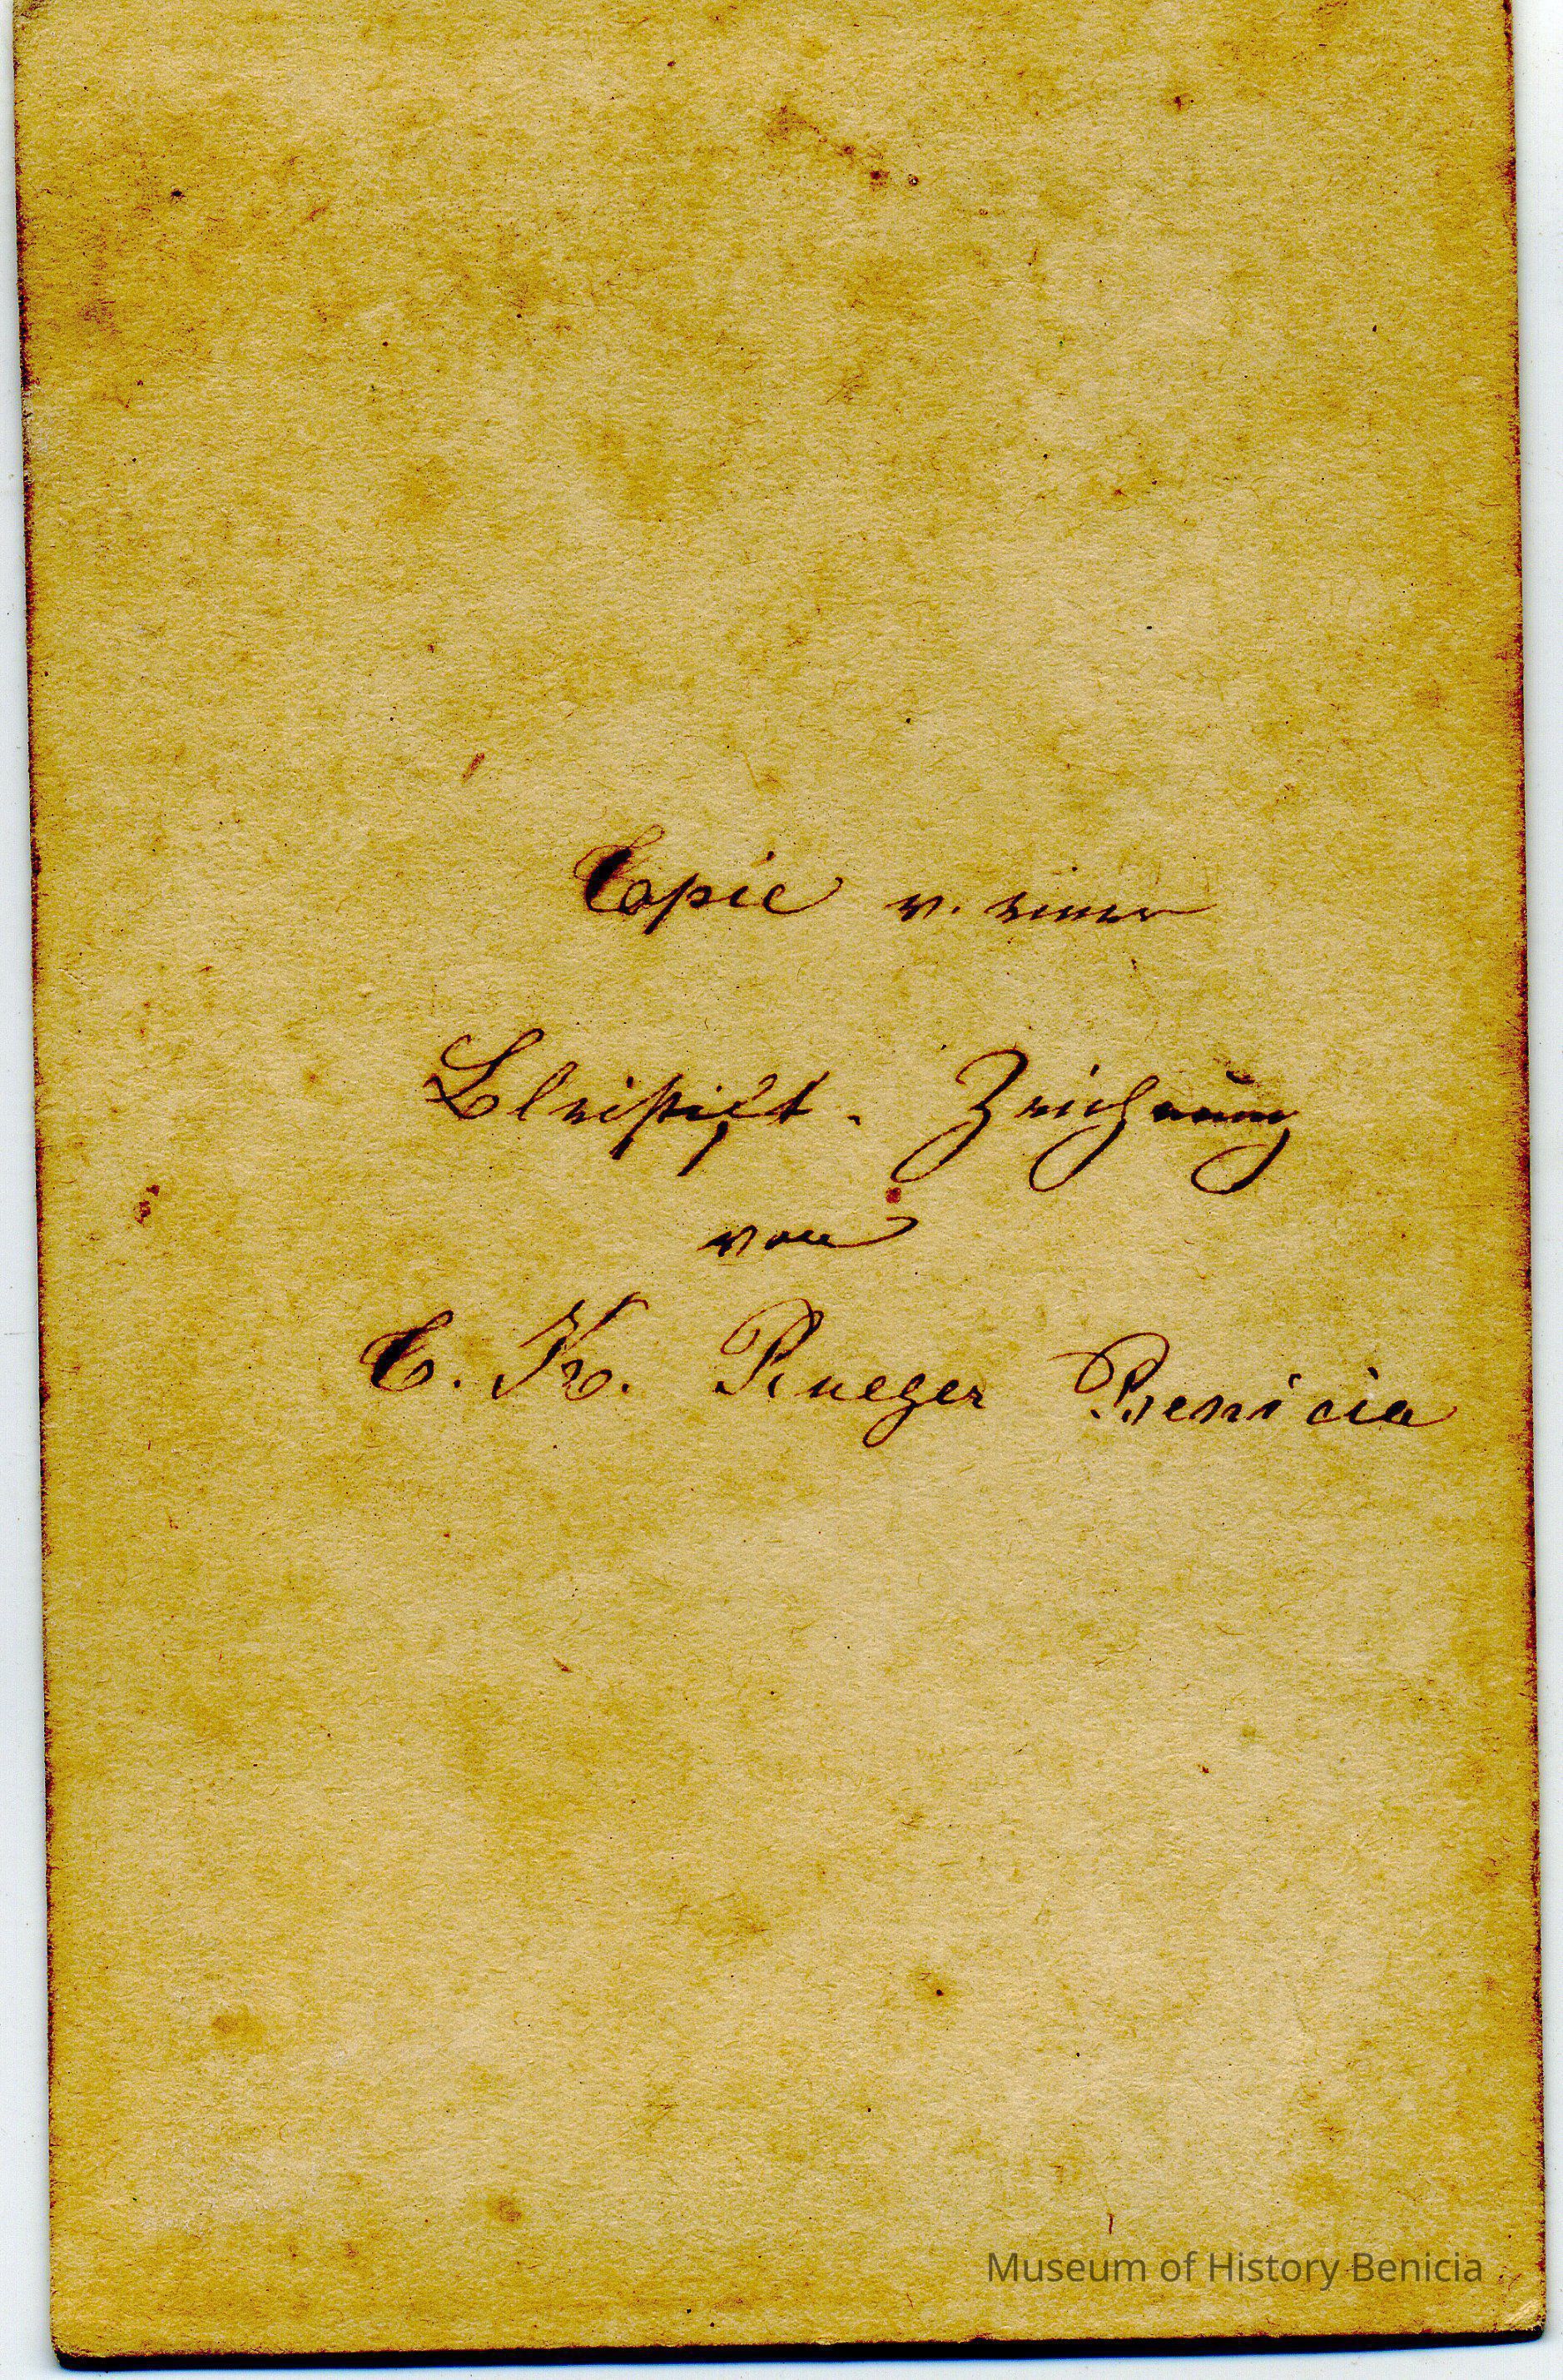 Copie v. einer
Bleistift-Zeichnung
von
C. K. Rueger Benicia
Museum of History Benicia